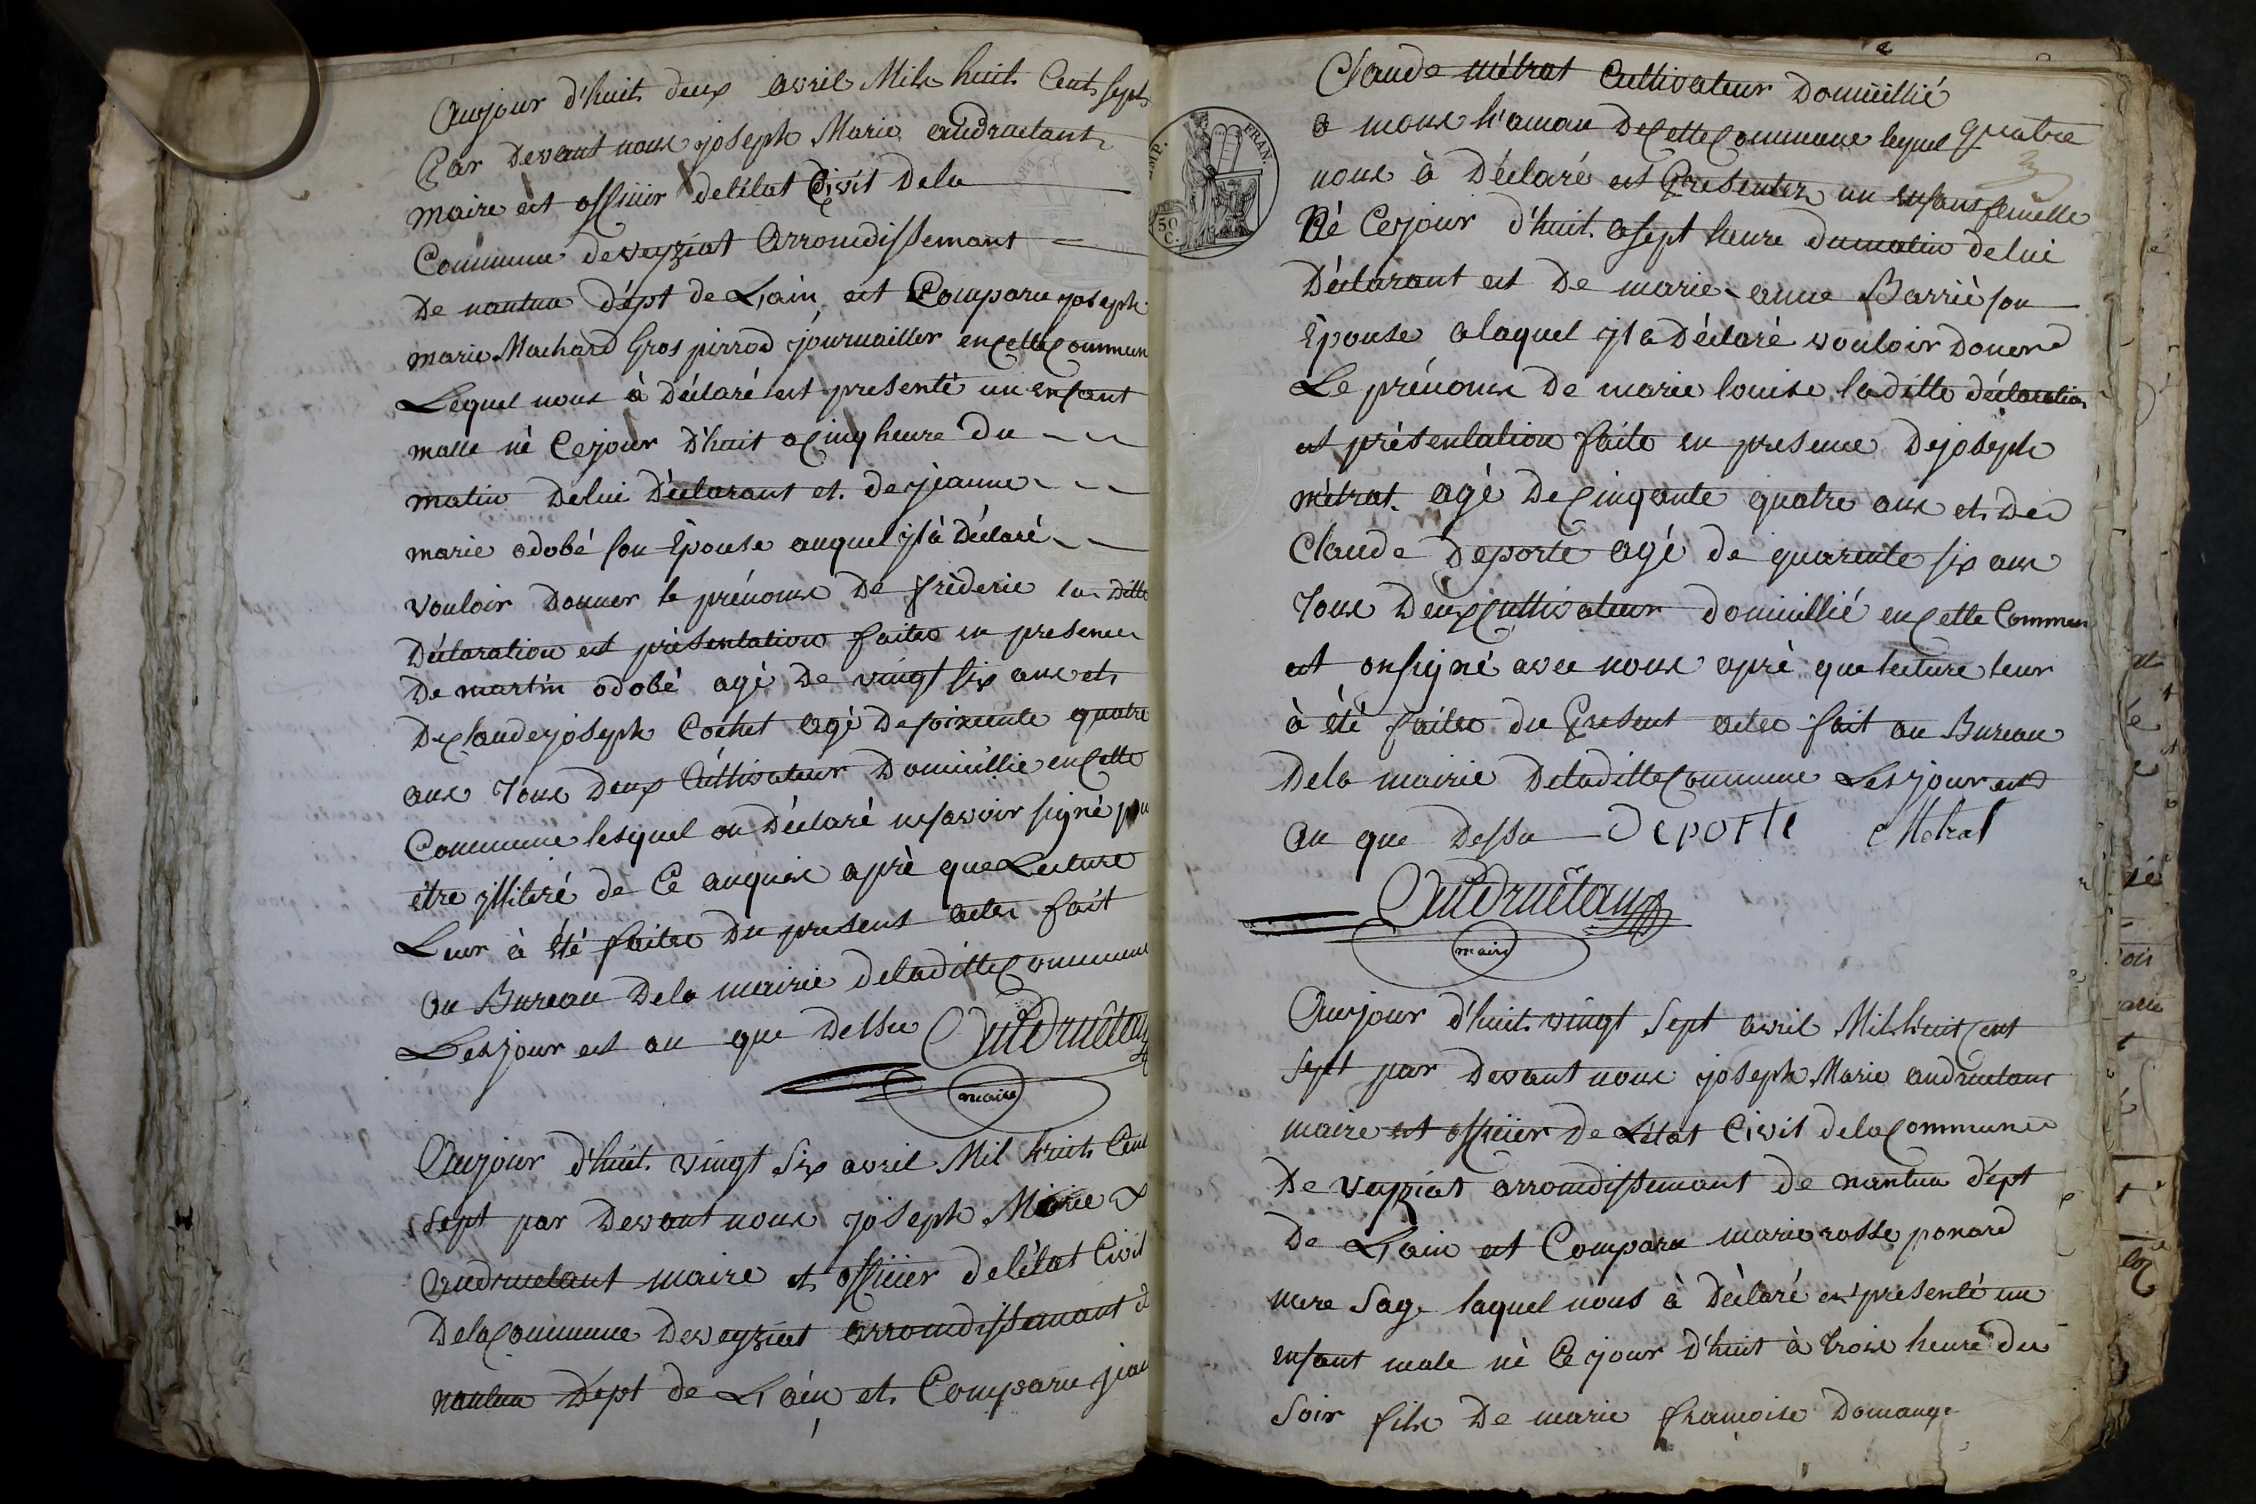 Aujour d'huit deux avril Mile huit Cent sept
Par devant nous joseph Marie andruetant
maire est officier deletat Civil dela
Commune deveyziat Arrondissemant
De nantua dépt de L'ain est Comparu joseph
marie Machard Gros pirrod journailler encette Commun
Lequel nous à Déclaré est presenté un enfant
malle né Cejour D'huit a cinq heure du
matin Delui Déclarant et dejeanne
marie odobé son Epouse auquel jl à Déclaré
vouloir donner le prénome De fréderic la Ditte
Déclaration est présentation faite en presence
De martin odobé agé De vingt six ans et
De claude joseph Cochet agé De soixente quatre
ans Tous deux Cultivateur Domicillié encette
Commune lesquel on Déclaré ne savoir signé pou
être jllitéré de Ce anquis aprè que Lecture
Leur à été faite Du present acte fait
Au Bureau Dela mairie deladitte Commune
Les jour est an que Dessu Andruétan
maire
Aujour d'huit vingt six avril Mil huit Cent
Sept par Devant nous joseph Marie
Andruetant maire et officier deletat Civil
Dela Commune Deveyziat arrondissemant d
nantua Dépt de L'ain et Comparu jean
Claude métrat Cultivateur Domicillié
a mons h'amau De cette Commune lequel quatre
3
nous à Déclaré est Presenter un enfant femelle
Né Cejour d'huit a sept heure dumatin delui
Déclarant est De marie anne Barriè son
Epouse alaquel jl a Déclaré vouloir Doner
Le prénome De marie louise laditte déclaration
est présentation faite en presence Dejoseph
métrat agé De cinqante quatre ans et De
Claude Deporte agé de quarente six ans
Tous Deux Cultivateur Domicillié encette Commun
est onsigné avec nous aprè que lecture leur
à été faite du Present acte fait au Bureau
Dela mairie Deladitte Commune Les jour est
an que Dessu Deporte Metrat
Andruétan
maire
Aujour d'huit vingt sept avril Mil huit cent
sept par Devant nous joseph Marie andruetant
maire est officier De L'état Civil dela Commune
De veyziat arrondissemant de nantua dépt
De L'ain est Compara marie rosse ponard
mere sage laquel nous à Déclaré et presenté un
enfant male né Ce jour d'huit à trois heure du
Soir fils De marie francoise Domange
IMP. FRAN.
50 C.